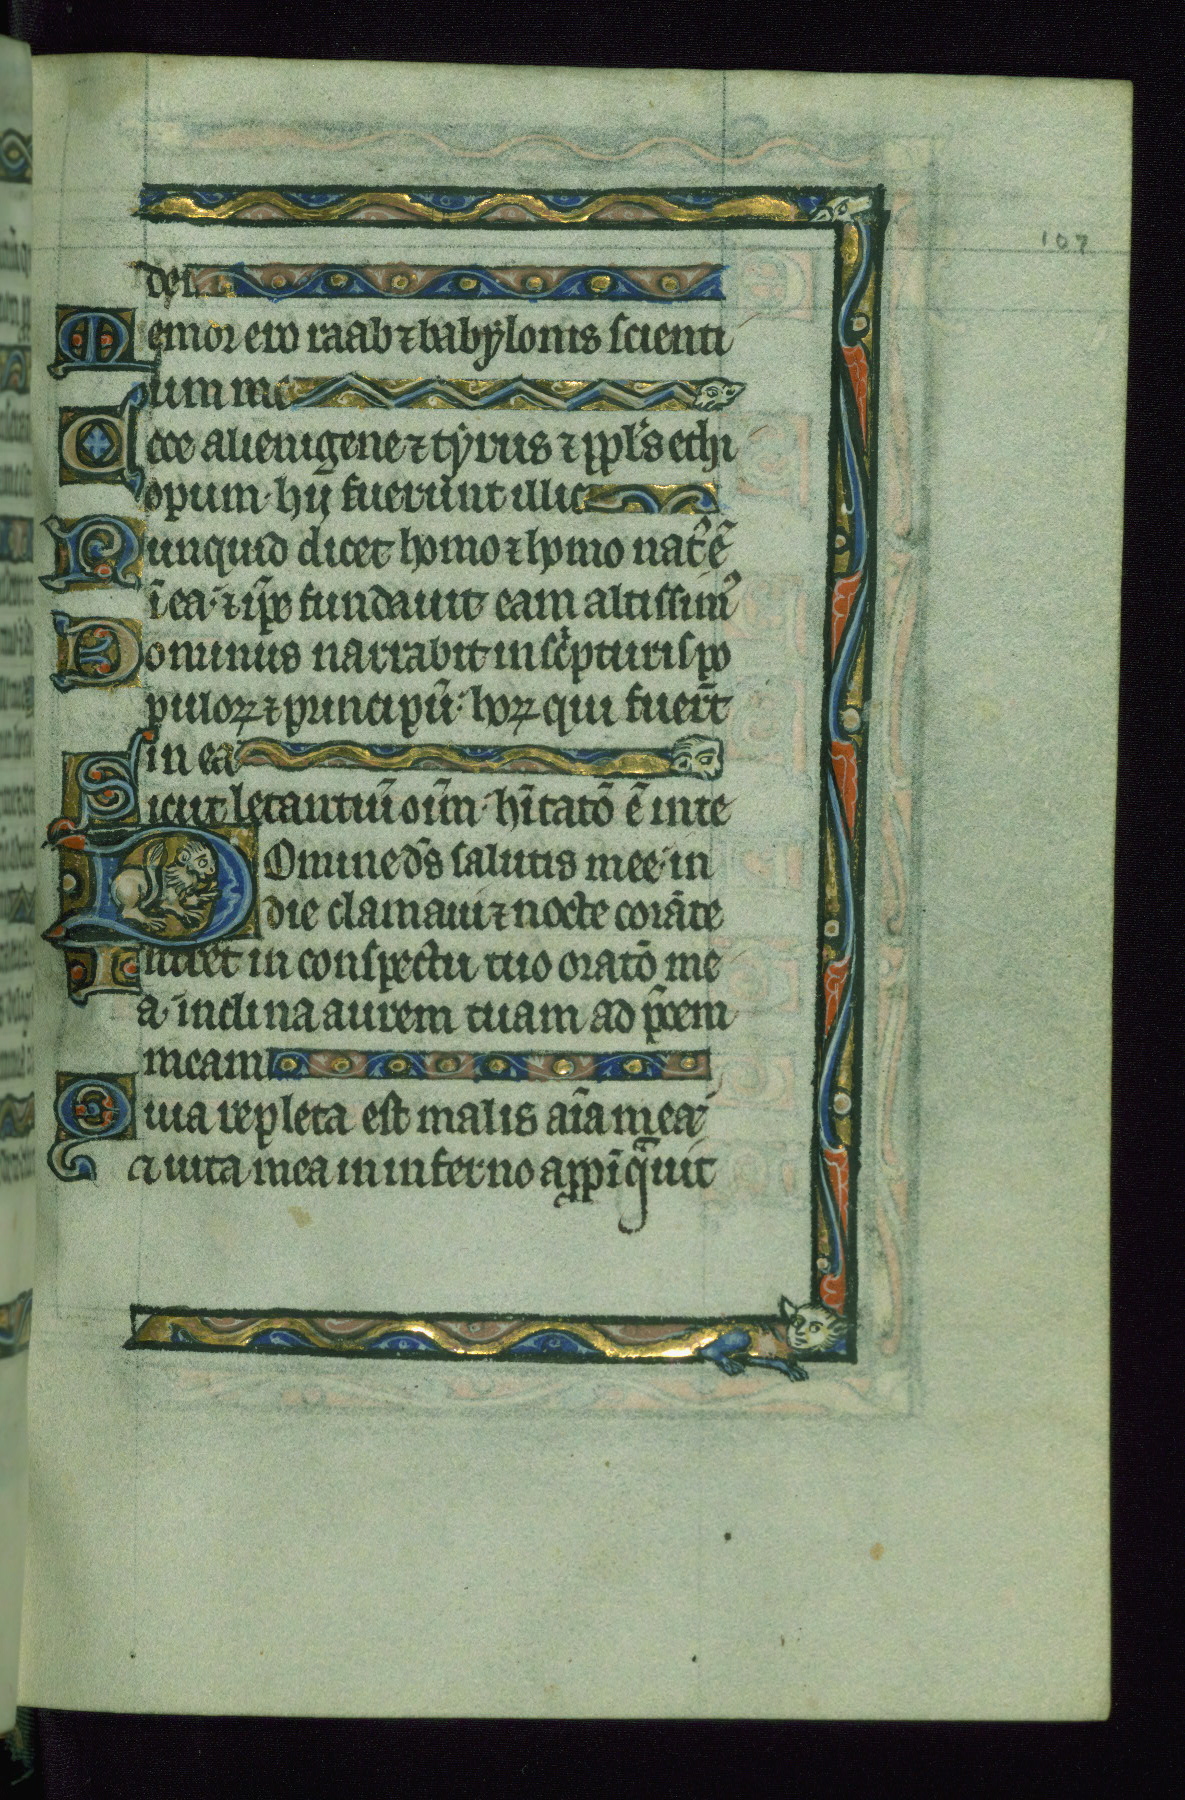 107
dei
Memor ero raab ⁊ babẏlonis scienti
um me
Ecce alienigene ⁊ tẏrus ⁊ ppl's ethi
opum· hij fuerunt illic
Nunquid dicet homo ⁊ homo nat᷒ ē
ī ea· ⁊ ip̄e fundauit eam altissim᷒
Dominus narrabit in sc'pturis po
puloꝝ ⁊ principū· hoꝝ qui fuer̄t
in ea
Sicut letantiū oīm· hītatō ē in te
Domine ds̄ salutis mee· in
die clamaui ⁊ nocte corā te
Intret in conspectu tuo oratō me
a· inclina aurem tuam ad p̄cem
meam
Quia repleta est malis aīa mea·
et uita mea in inferno appīq̄uit